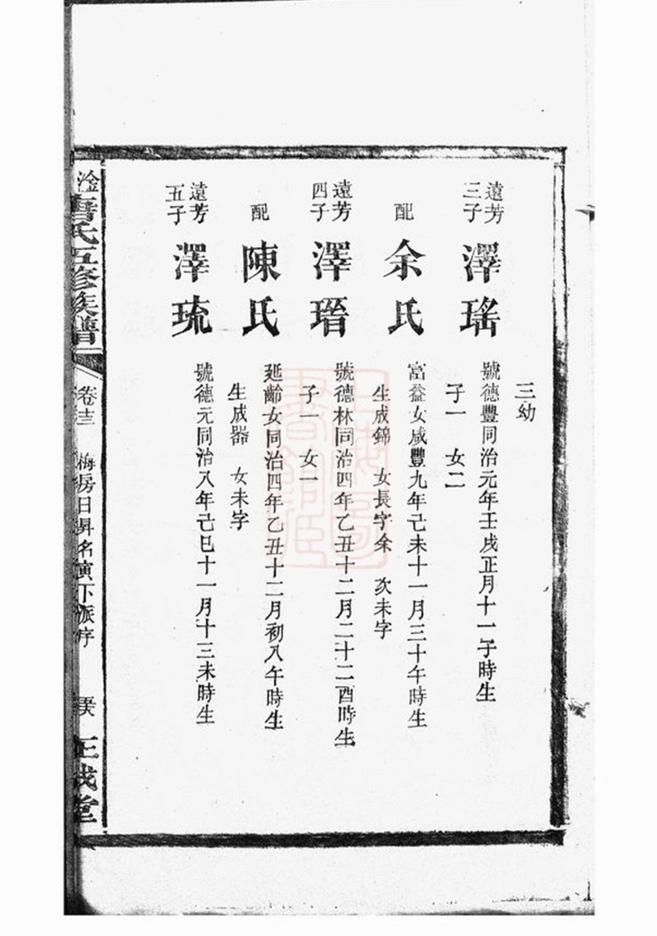 三幼
遠芳三子 澤瑤 號德豐同治元年壬戌正月十一子時生
子一 女二
配 余氏 富益女咸豐九年己未十一月三十午時生
生成錦 女長字余 次未字
遠芳四子 澤瑨 號德林同治四年乙丑十二月二十二酉時生
子一 女一
配 陳氏 延齡女同治四年乙丑十二月初八午時生
生成器 女未字
遠芳五子 澤琉 號德元同治八年己巳十一月十三未時生
氏五修族譜 卷十三 梅房日昇名演下派序